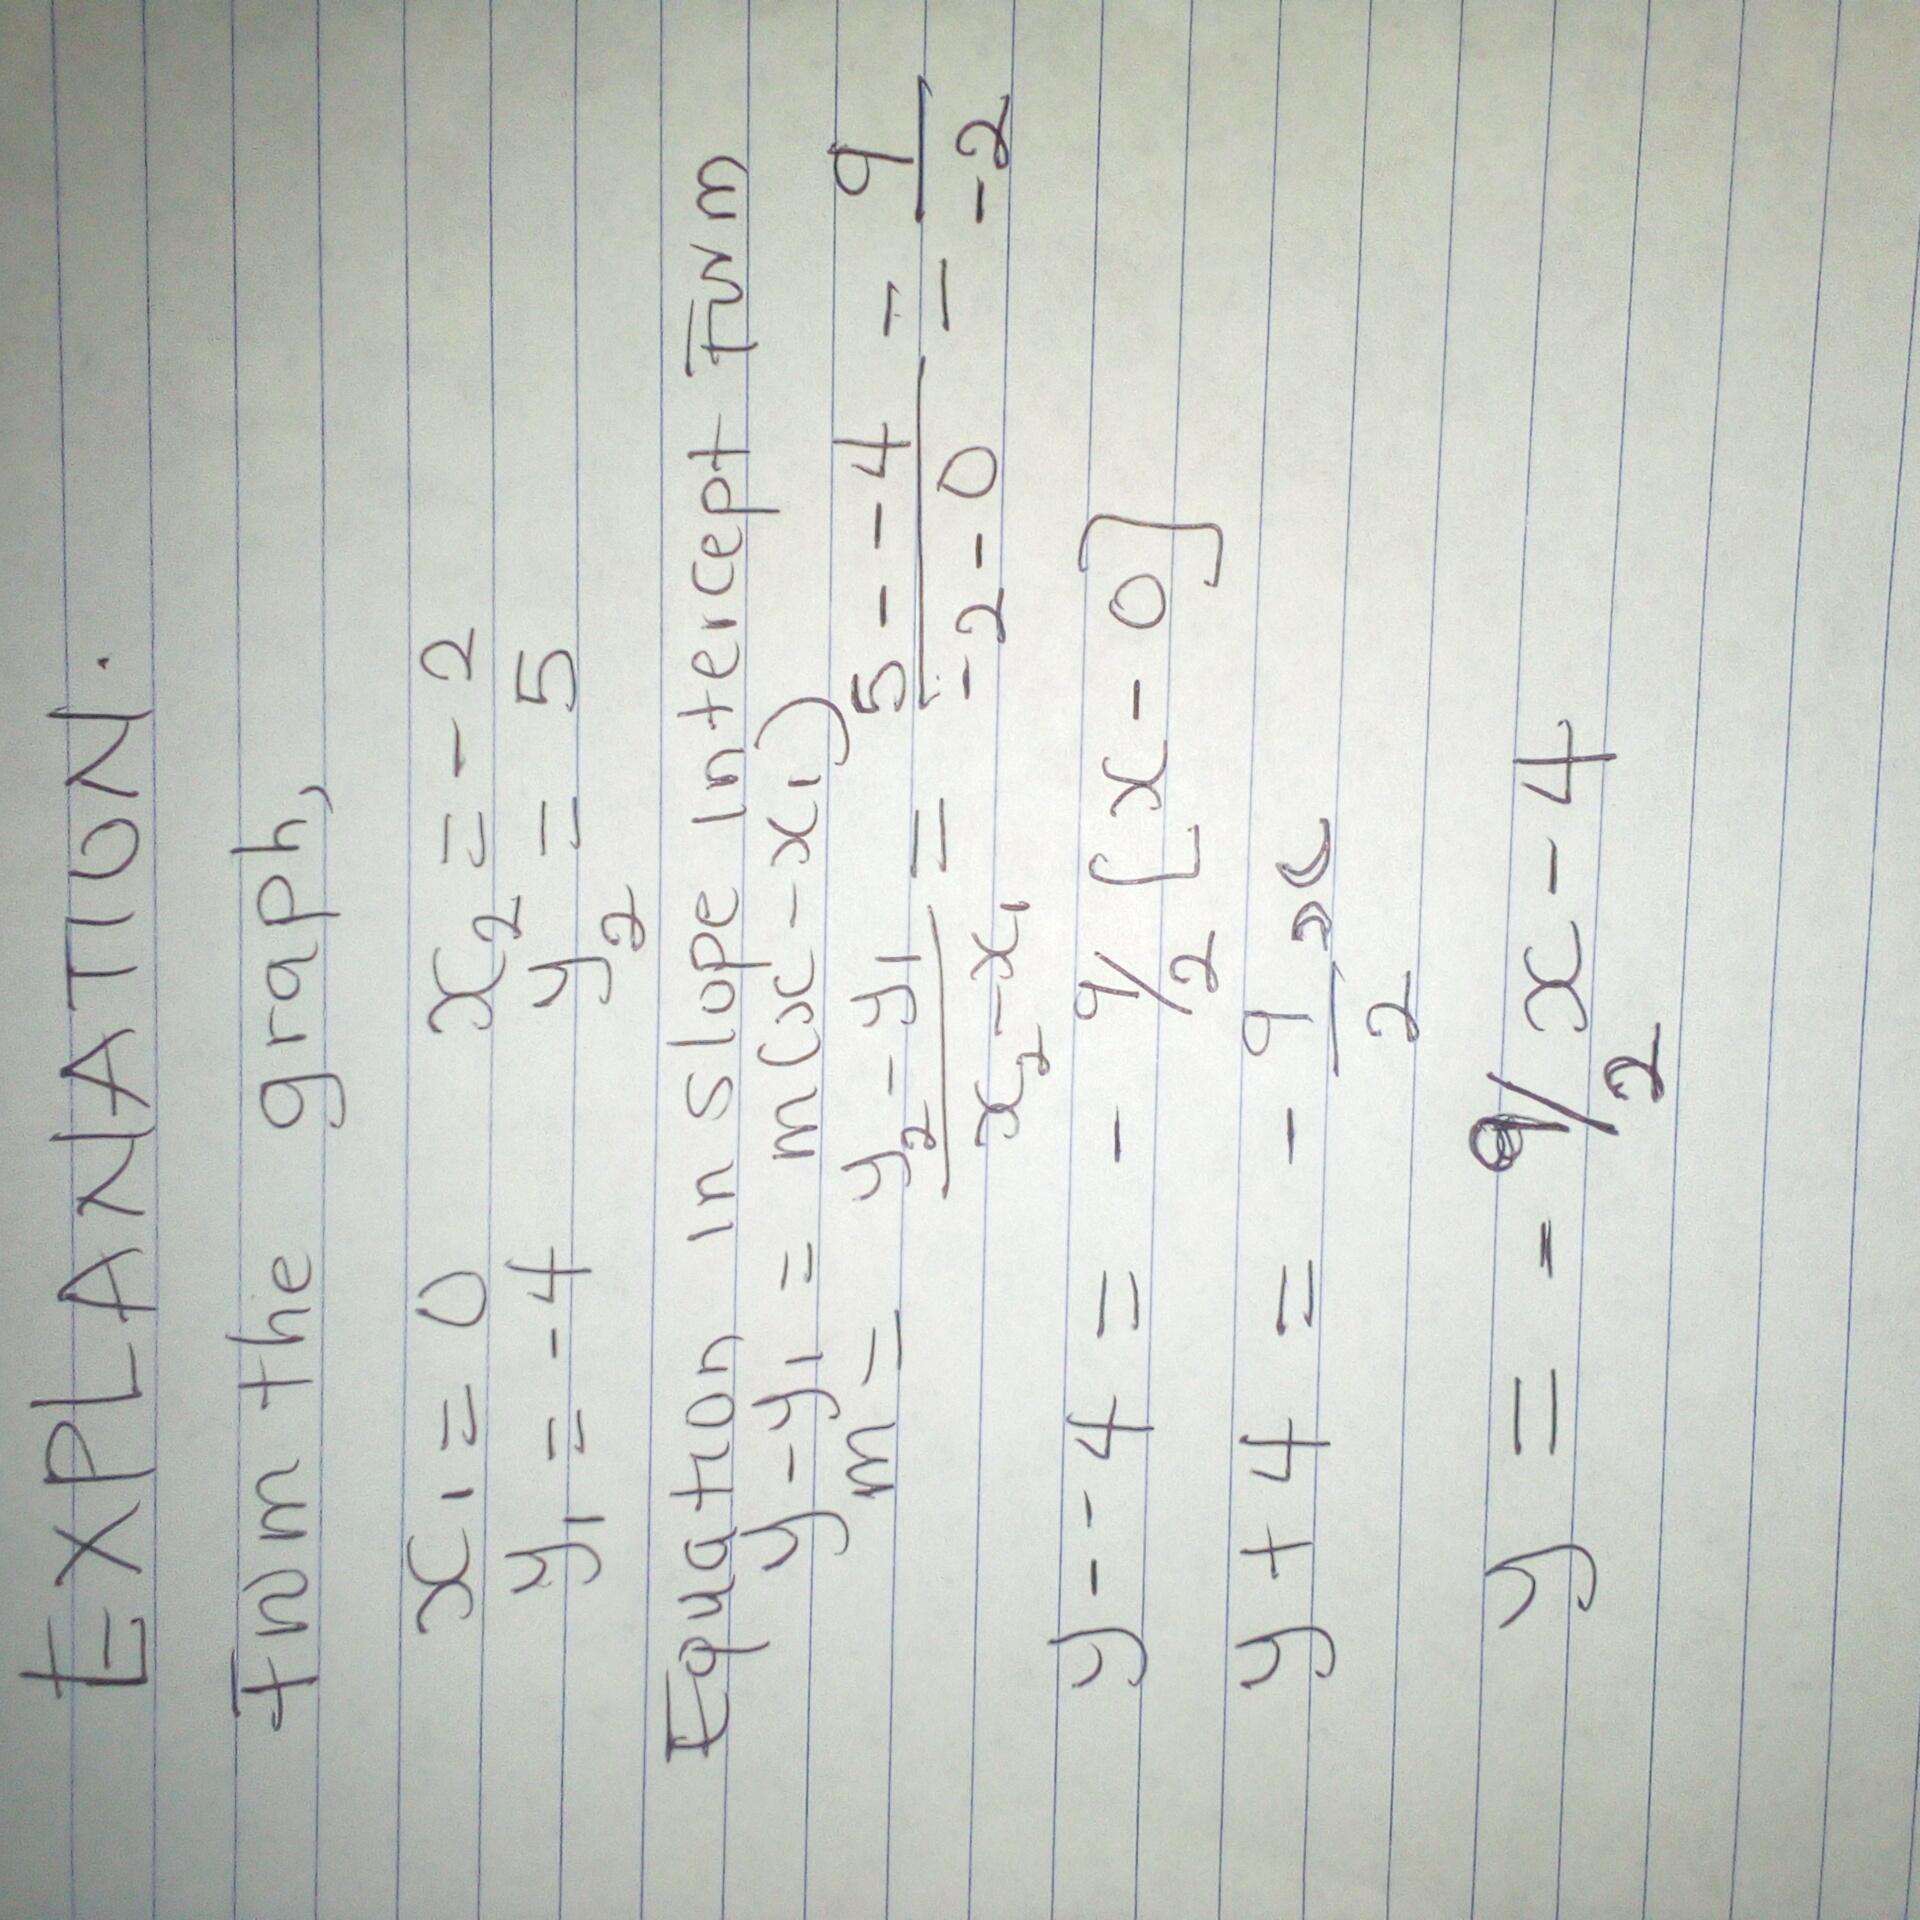 EXPLANATION.
From the graph,
x₁ = 0 x₂ = -2
y₁ = -4 y₂ = 5
Equation in slope Intercept Form
y - y₁ = m(x - x₁)
m = y₂ - y₁ / x₂ - x₁ = 5 - - 4 / -2 - 0 = 9 / -2
y - - 4 = - 9/2 [x - 0]
y + 4 = - 9/2 x
y = - 9/2 x - 4